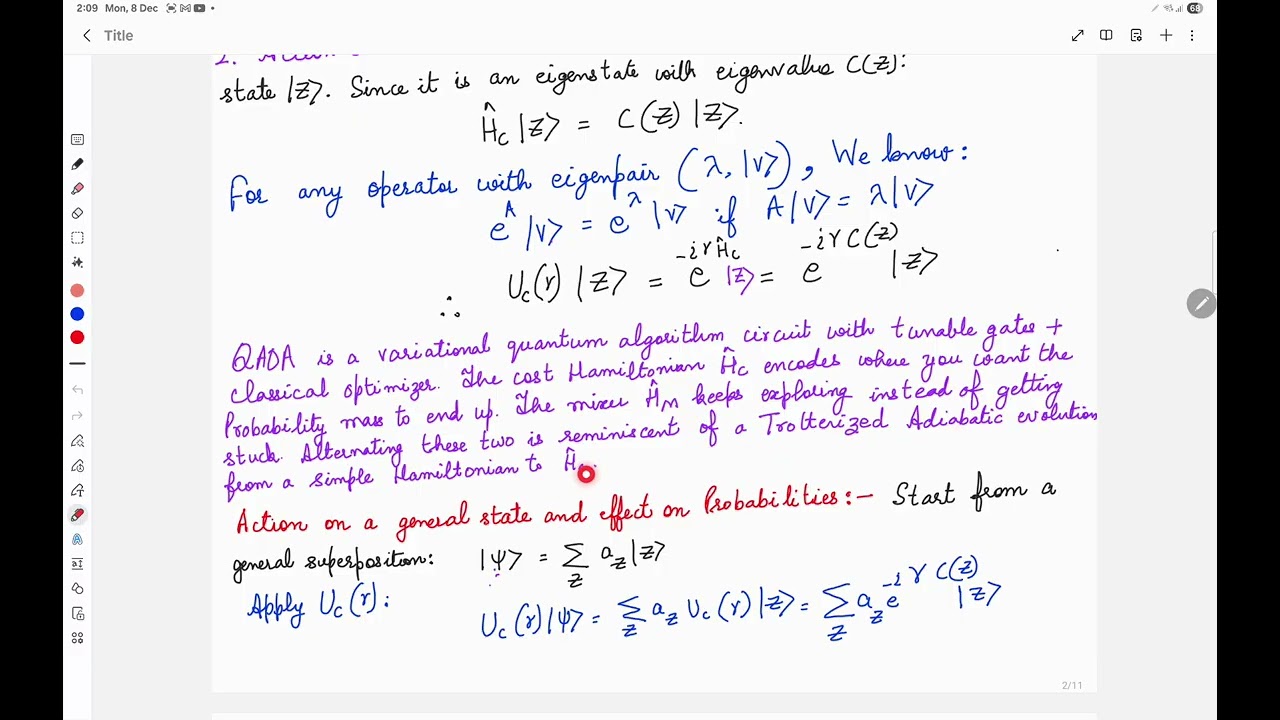 2:09 Mon, 8 Dec
68
Title
state |z⟩. Since it is an eigenstate with eigenvalue C(z):
Ĥc |z⟩ = C(z) |z⟩.
For any operator with eigenpair (λ, |v⟩), We know:
e^A |v⟩ = e^λ |v⟩ if A|v⟩ = λ|v⟩
∴ Uc(γ) |z⟩ = e^{-iγĤc} |z⟩ = e^{-iγC(z)} |z⟩
QAOA is a variational quantum algorithm circuit with tunable gates +
classical optimizer. The cost Hamiltonian Ĥc encodes where you want the
Probability mass to end up. The mixer ĤM keeps exploring instead of getting
stuck. Alternating these two is reminiscent of a Trotterized Adiabatic evolution
from a simple Hamiltonian to Ĥc.
Action on a general state and effect on Probabilities:- Start from a
general superposition: |Ψ⟩ = Σ_z a_z |z⟩
Apply Uc(γ): Uc(γ)|Ψ⟩ = Σ_z a_z Uc(γ)|z⟩ = Σ_z a_z e^{-iγC(z)} |z⟩
2/11